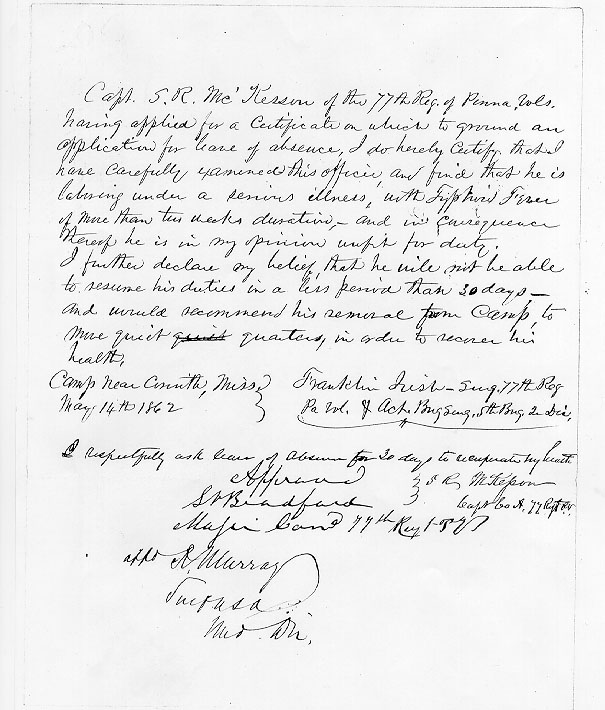 Capt. S. R. Mc'Kesson of the 77th Reg. of Penna. Vols.
having applied for a Certificate on which to ground an
application for leave of absence, I do hereby Certify that I
have Carefully examined this officer and find that he is
laboring under a serious illness, with Typhoid Fever
of more than two weeks duration, – and in Consequence
thereof he is in my opinion unfit for duty.
I further declare my belief, that he will not be able
to resume his duties in a less period than 30 days, –
and would recommend his removal from Camp, to
more quiet quiet quarters, in order to recover his
health.
Camp Near Corinth, Miss.
May 14th 1862
Franklin Irish – Surg. 77th Reg
Pa Vol. & Act. Brig Surg. 5th Brig. 2 Div.
I respectfully ask leave of absence for 30 days to recuperate my health
S R McKesson
Capt Co A, 77 Regt P.V.
Approved
Bradford
Major Comd 77th Regt P V
appd R. Murray
Surg USA
Med. Dir.